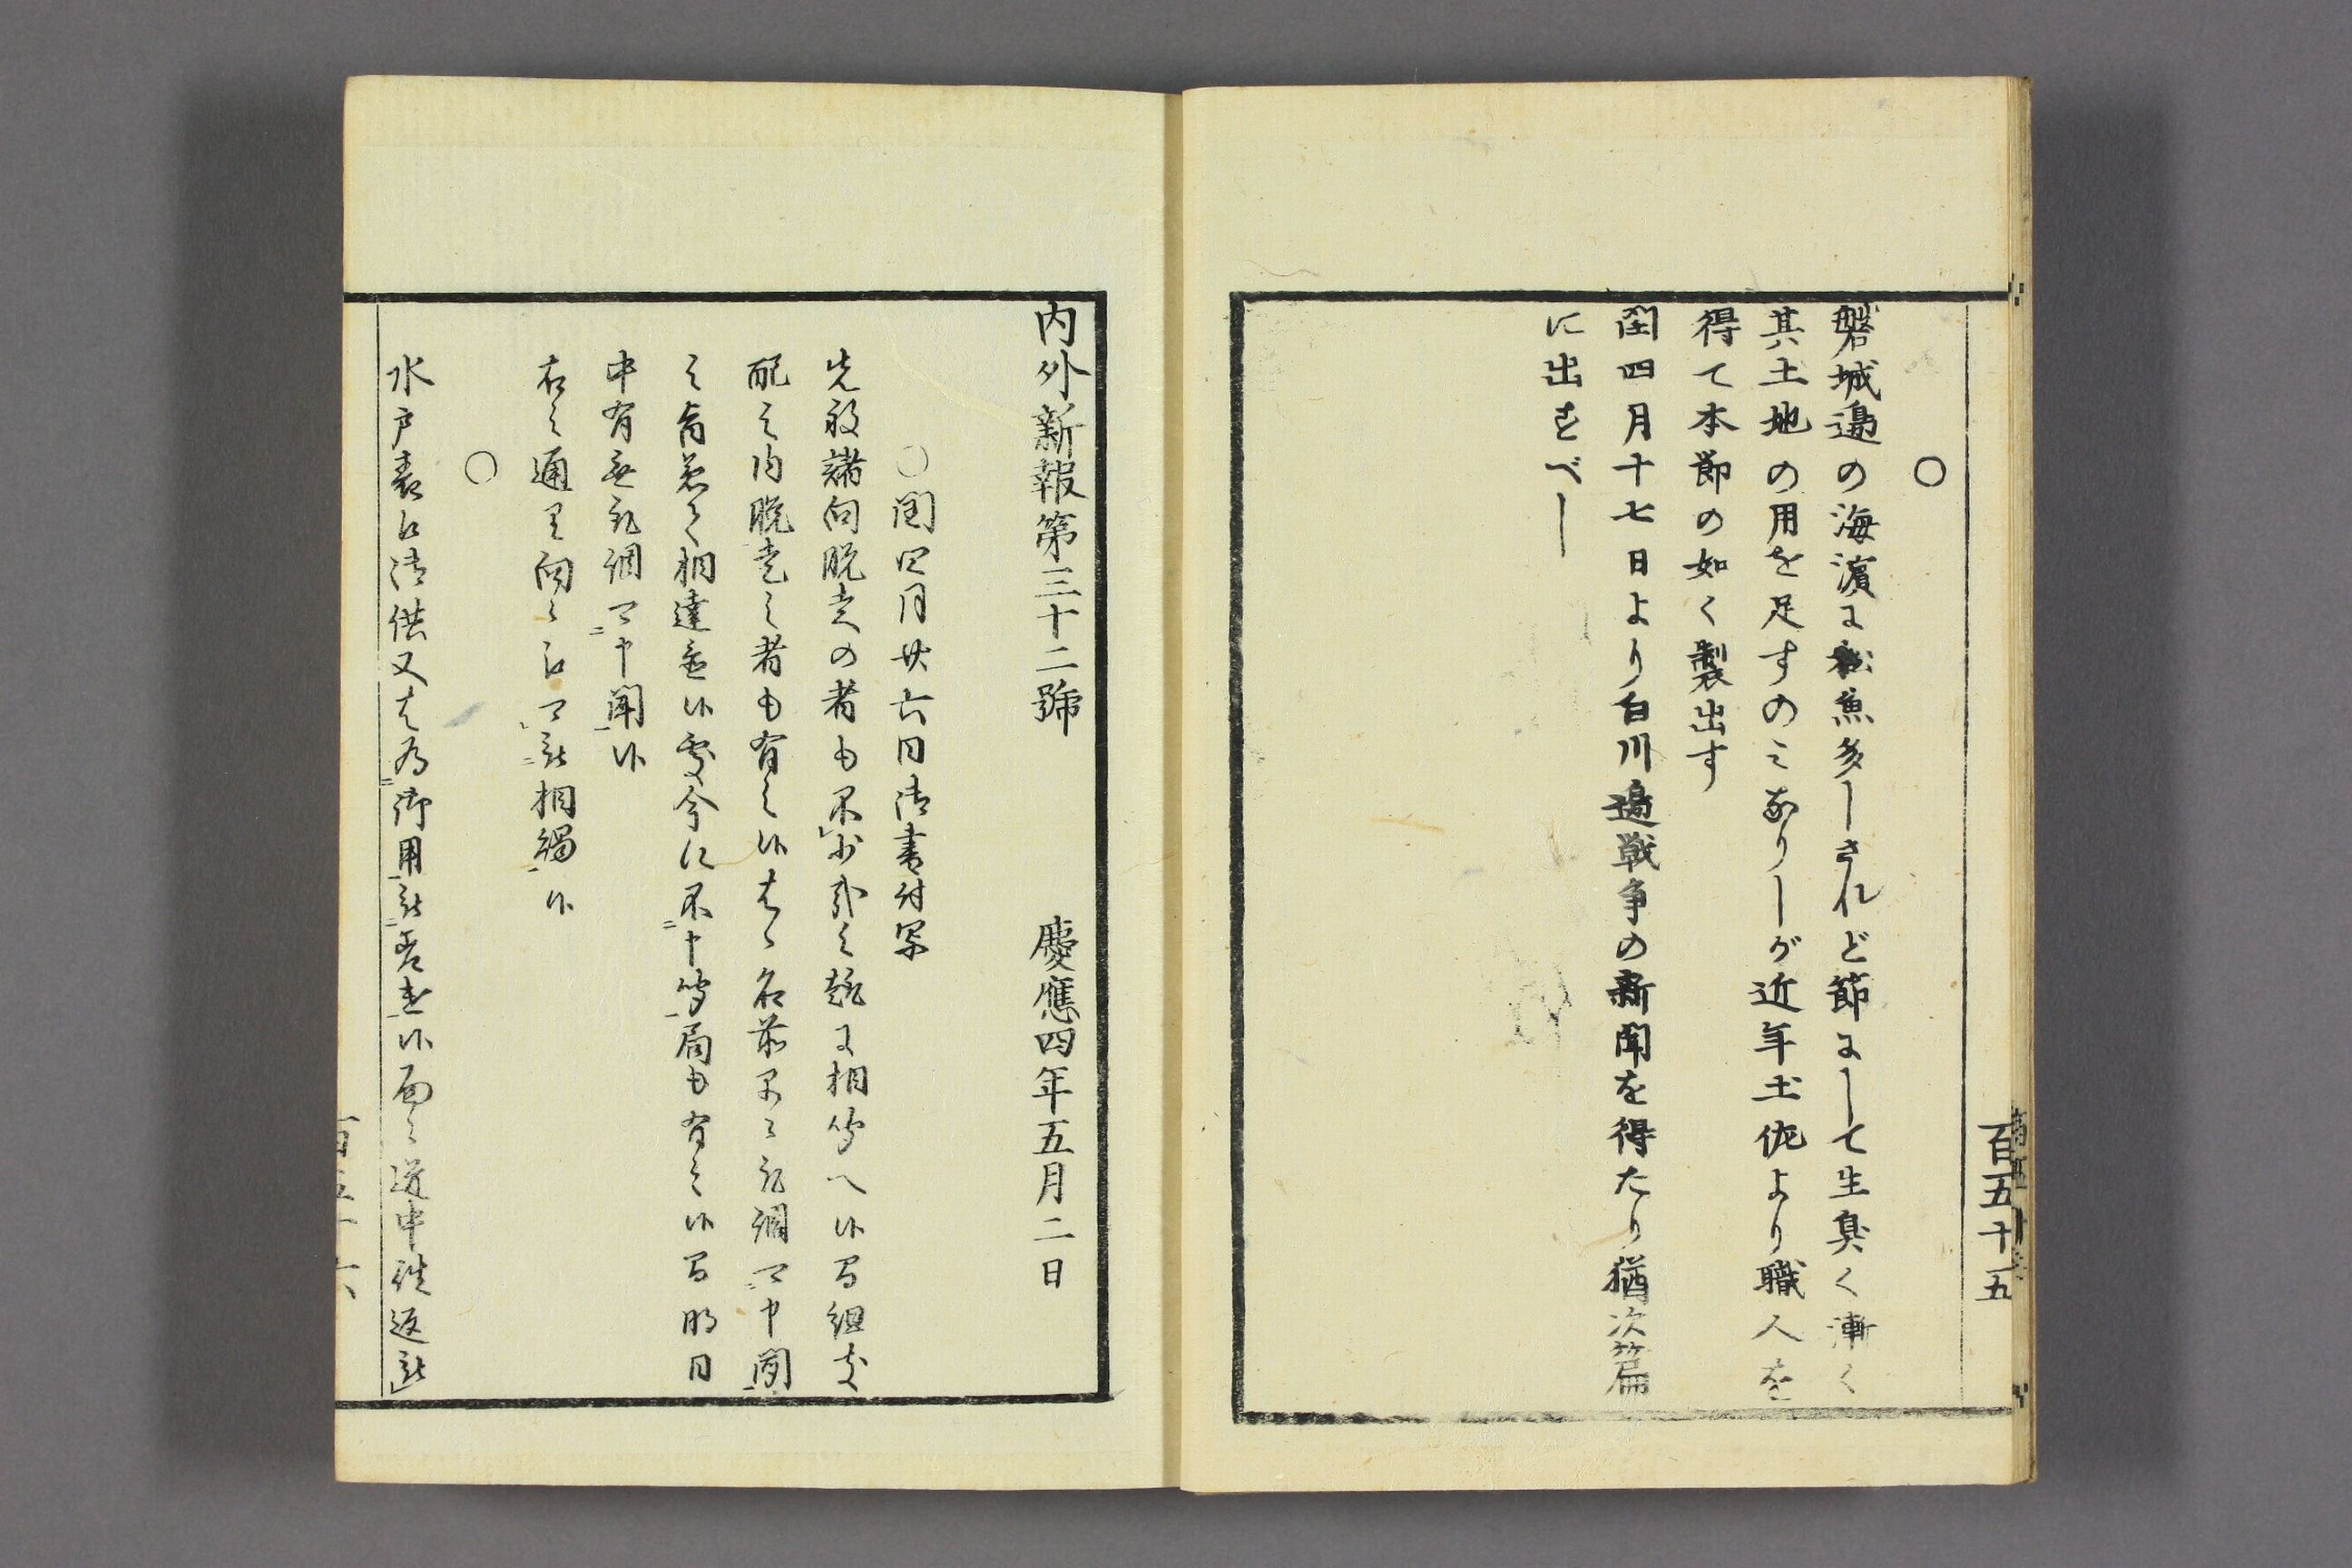 百五十五
○
磐城邉の海濱に松魚多しされど節にして生臭く漸く
其土地の用を足すのミありしが近年土佐より職人を
得て本節の如く製出す
閏四月十七日より白川邉戦争の新聞を得たり猶次篇
に出すべし
内外新報第三十二號 慶應四年五月二日
○閏四月廿六日御書付写
先般諸向脱走の者も不少哉之趣に相聞へ候間組支
配之内脱走之者も有之候はゝ名前早々取調可申聞
之旨兼て相達置候處今に不申聞局も有之候間明日
中有無取調可申聞候
右之通里向々江可被相觸候
○
水戸表江御供又は為御用被差遣候面々道中往返被
百五十六